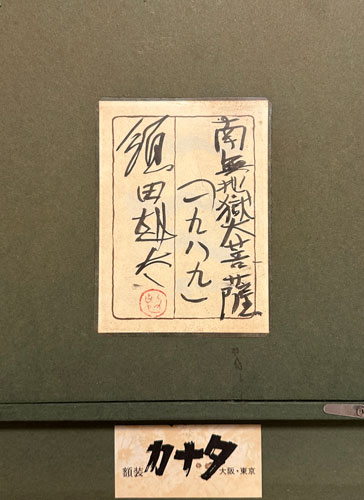 南無地獄大菩薩
(一九八九)
須田剋太
額装 カナタ 大阪・東京